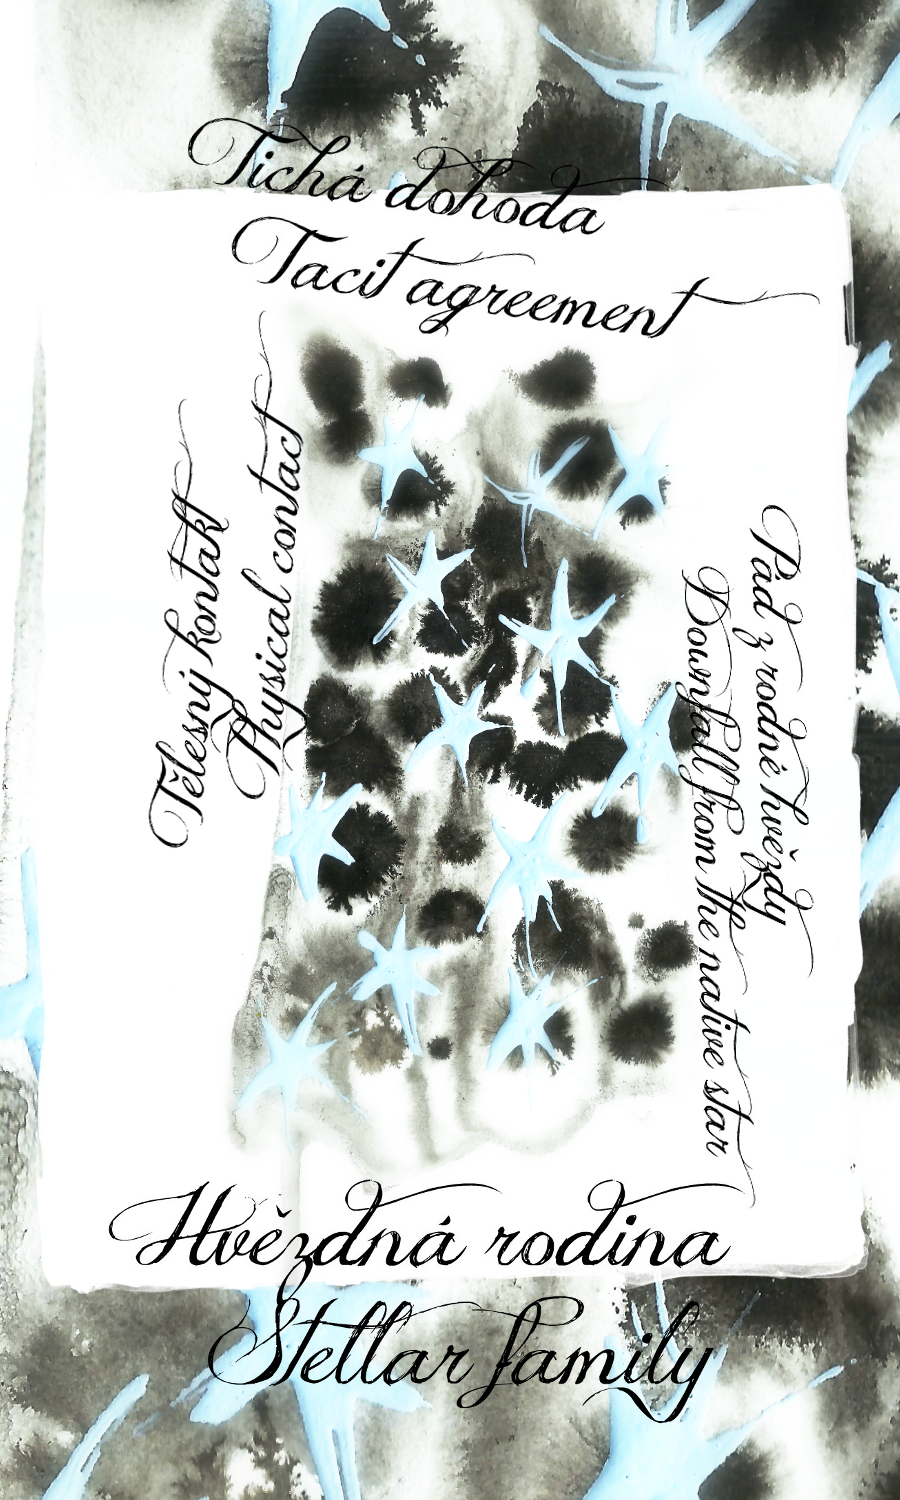 Tichá dohoda
Tacit agreement
Tělesný kontakt
Physical contact
Pád z rodné hvězdy
Downfall from the native star
Hvězdná rodina
Stellar family